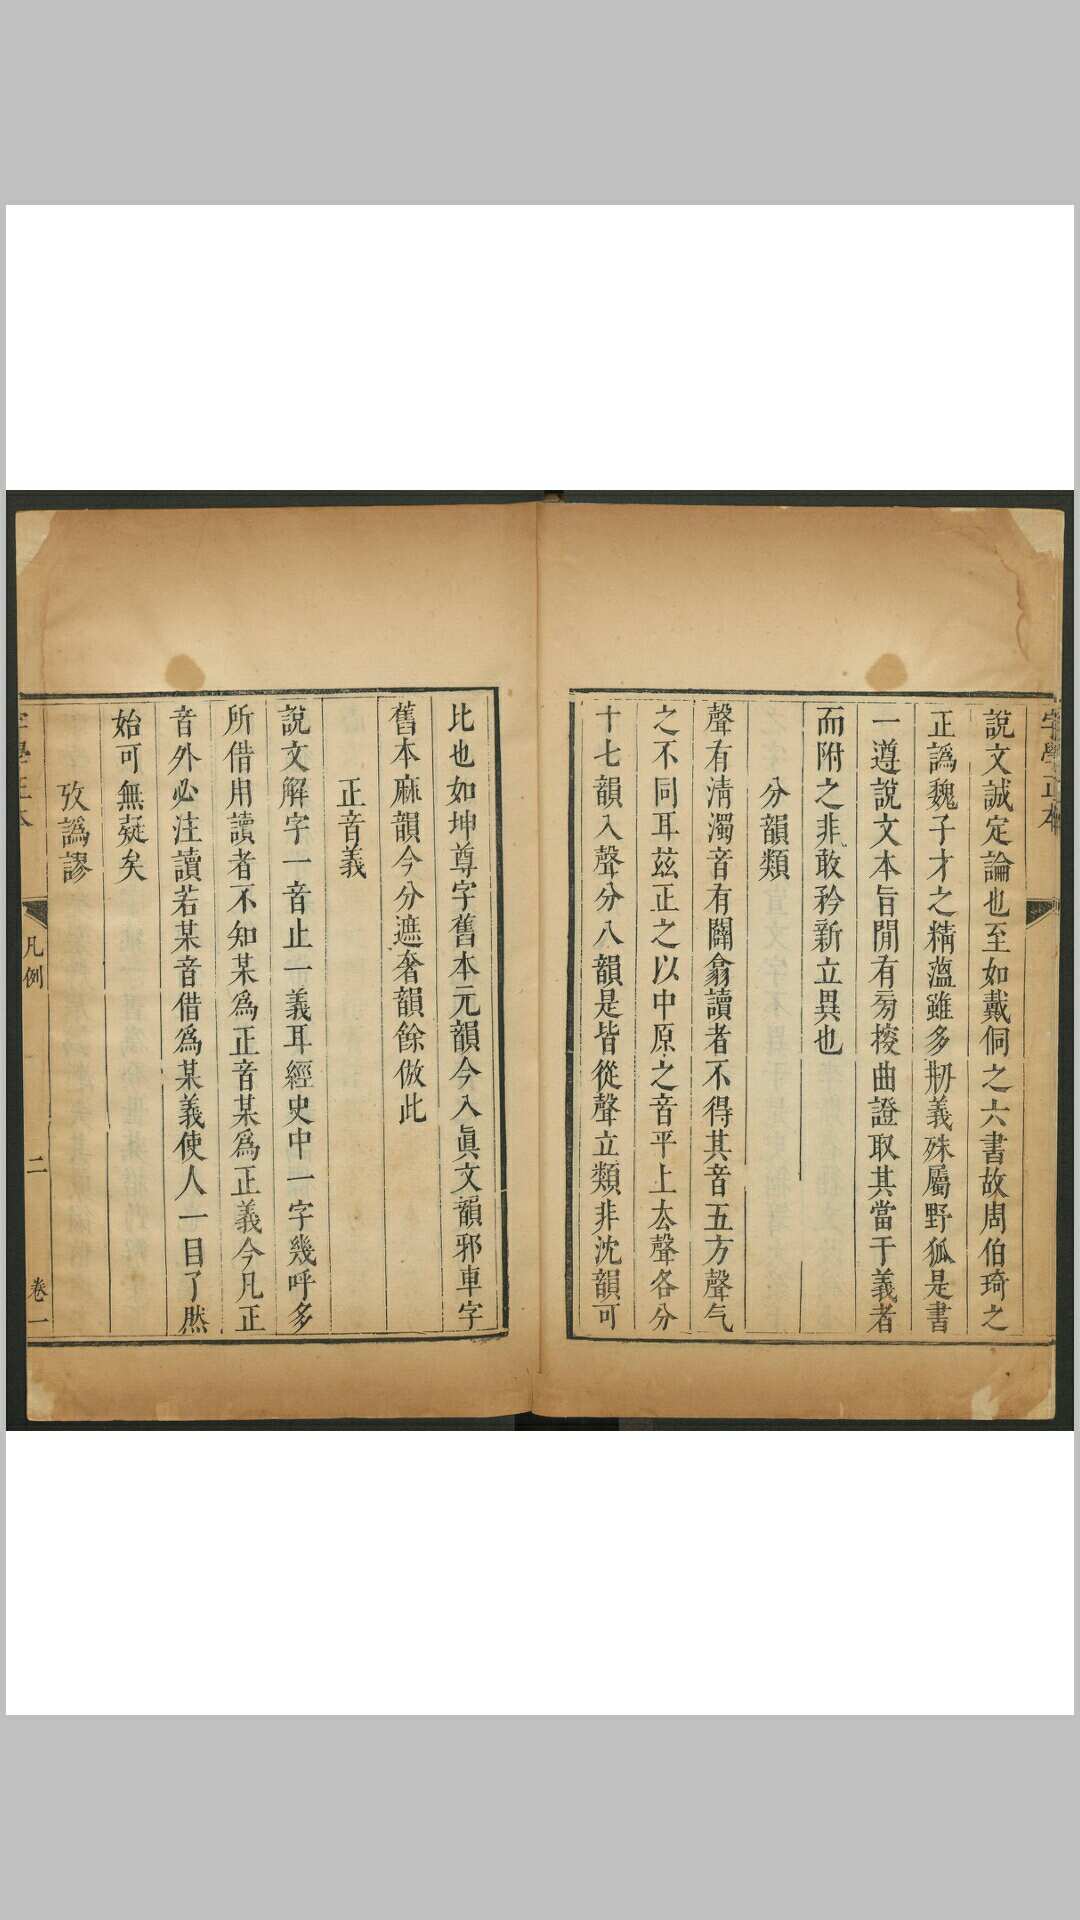 字學正本
說文誠定論也至如戴侗之六書故周伯琦之
正譌魏子才之精薀雖多刱義殊屬野狐是書
一遵說文本旨閒有旁搜曲證取其當于義者
而附之非敢矜新立異也
分韻類
聲有清濁音有闢翕讀者不得其音五方聲气
之不同耳茲正之以中原之音平上厺聲各分
十七韻入聲分八韻是皆從聲立類非沈韻可
比也如坤尊字舊本元韻今入眞文韻邪車字
舊本麻韻今分遮奢韻餘倣此
正音義
說文解字一音止一義耳經史中一字幾呼多
所借用讀者不知某爲正音某爲正義今凡正
音外必注讀若某音借爲某義使人一目了然
始可無疑矣
攷譌謬
字學正本
凡例
二
卷一